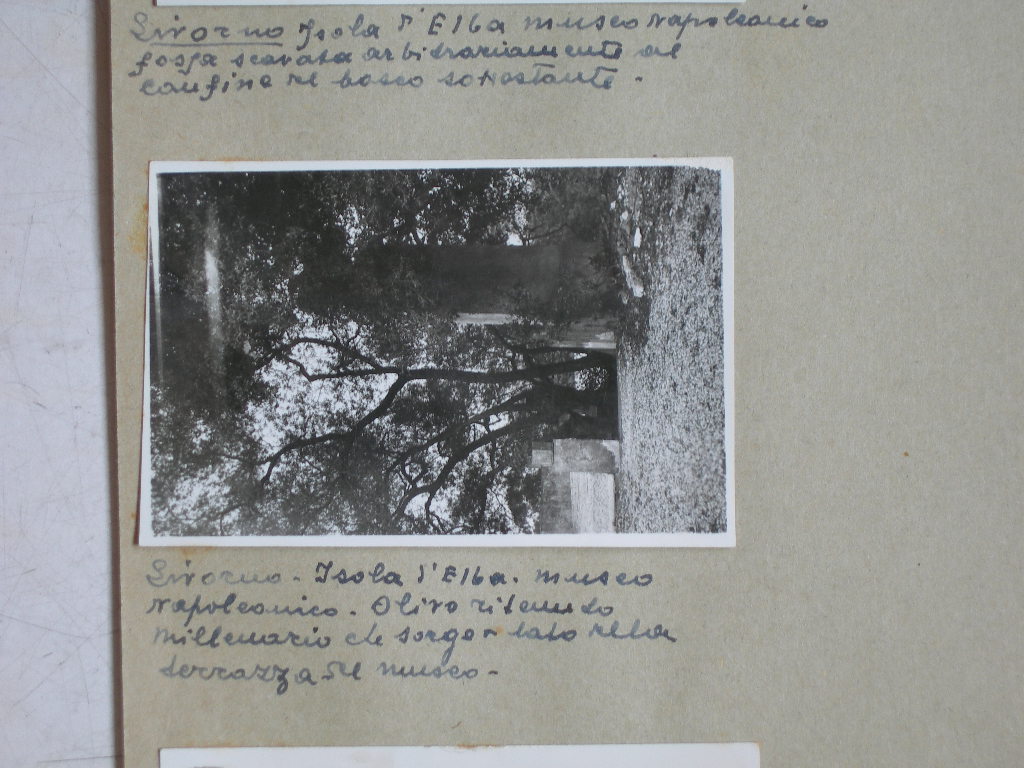 Livorno Isola d'Elba museo napoleonico
fossa scavata arbitrariamente al
confine del bosco sottostante.
Livorno - Isola d'Elba. museo
napoleonico. Olivo ritenuto
millenario che sorge a lato della
terrazza del museo -